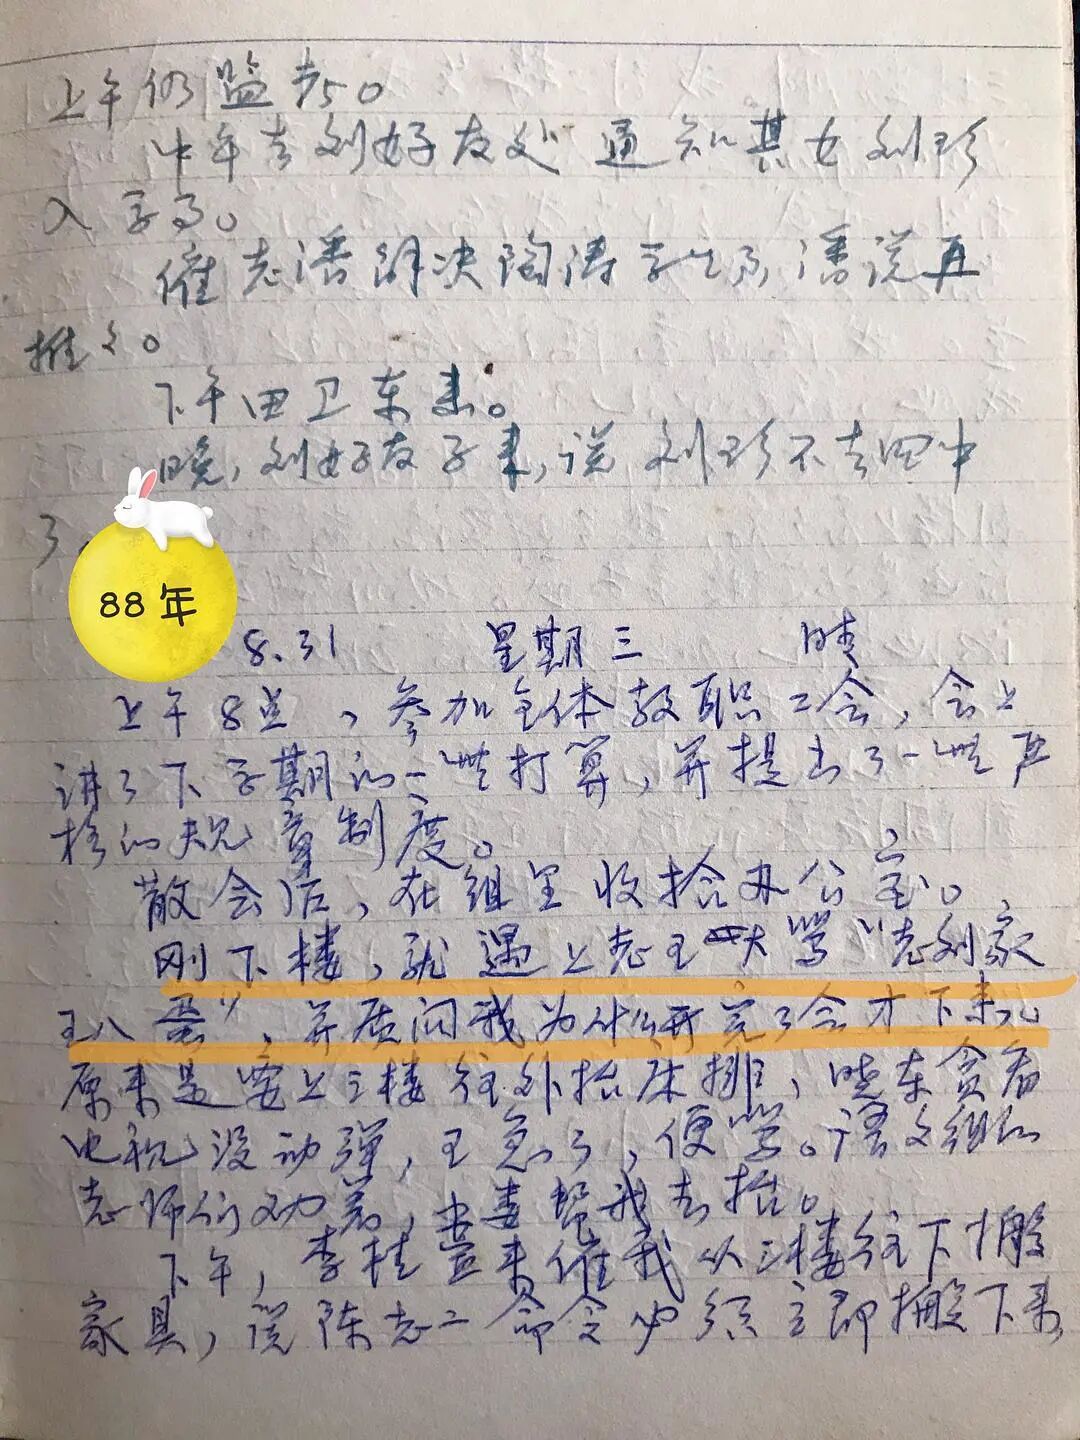 上午仍监考。
中午去刘好友处通知其女刘珍
入学事。
催老潘解决陶涛学生事,潘说再
推之。
下午田卫东来。
晚,刘好友子来,说刘珍不去四中
了
88年
8.31 星期三 晴
上午8点,参加全体教职工会,会上
讲了下学期的一些打算,并提出了一些严
格的规章制度。
散会后,在组里收拾办公室。
刚下楼,就遇上老王大骂“老刘家
王八蛋”,并质问我为什么开完了会才下来。
原来是要上三楼往外抬床排,晓东贪看
电视没动弹,王急了,便骂。语文组的
老师们劝着,帮我去抬。
下午,李桂蓝来催我从三楼往下搬
家具,说陈老二命令必须立即搬下来,